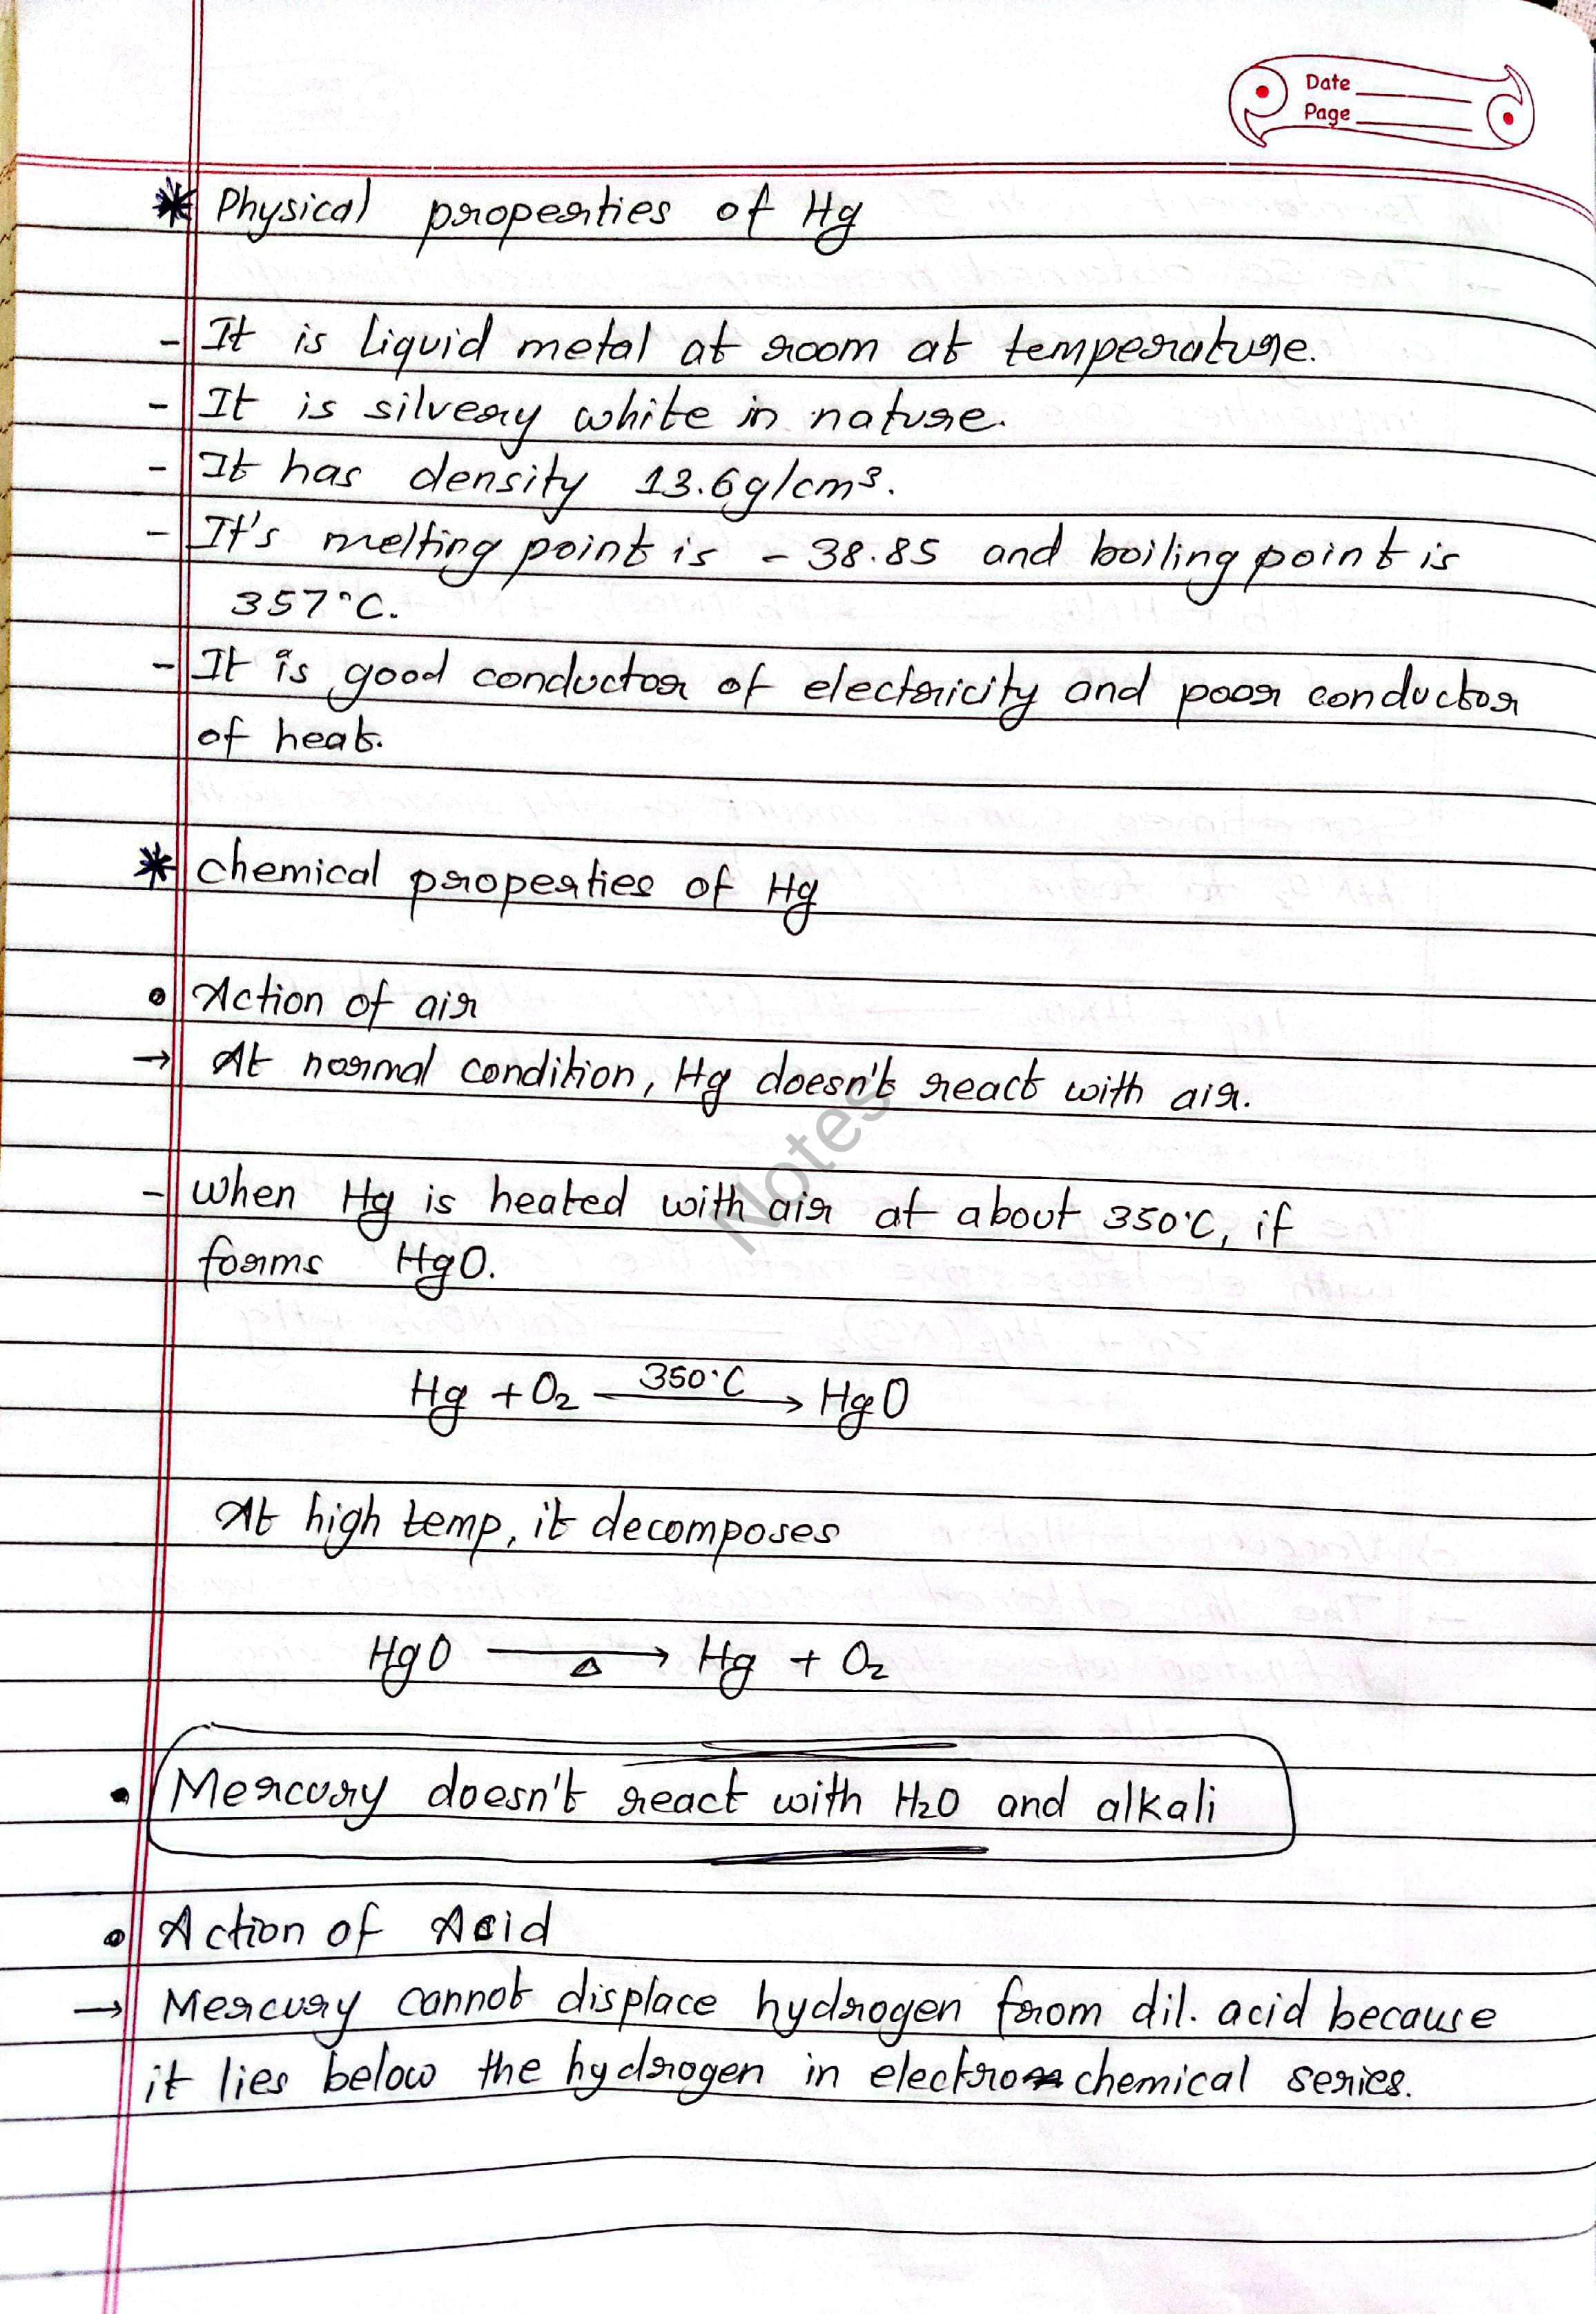 Date
Page
* Physical properties of Hg
- It is liquid metal at room at temperature.
- It is silvery white in nature.
- It has density 13.6g/cm³.
- It's melting point is - 38.85 and boiling point is
357°C.
- It is good conductor of electricity and poor conductor
of heat.
* Chemical properties of Hg
• Action of air
→ At normal condition, Hg doesn't react with air.
Notes
- When Hg is heated with air at about 350°C, if
forms HgO.
Hg + O₂ —350°C→ HgO
At high temp, it decomposes
HgO —Δ→ Hg + O₂
• Mercury doesn't react with H₂O and alkali
• Action of Acid
→ Mercury cannot displace hydrogen from dil. acid because
it lies below the hydrogen in electrochemical series.